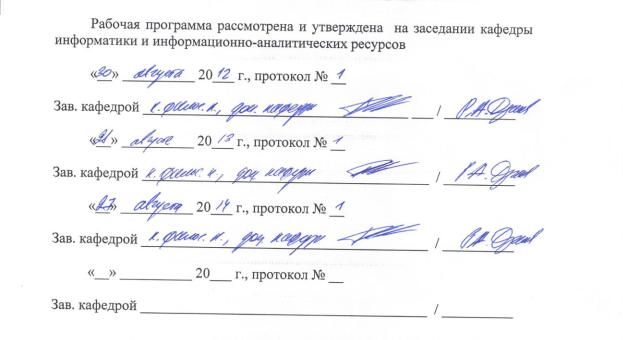 Рабочая программа рассмотрена и утверждена на заседании кафедры
информатики и информационно-аналитических ресурсов
«30» августа 2012 г., протокол № 1
Зав. кафедрой к. филос. н., доц. кафедры /
« » августа 2013 г., протокол № 1
Зав. кафедрой к. филос. н., доц. кафедры /
«27» августа 2014 г., протокол № 1
Зав. кафедрой к. филос. н., доц. кафедры /
«__» __________ 20___ г., протокол № __
Зав. кафедрой ____________________ / __________